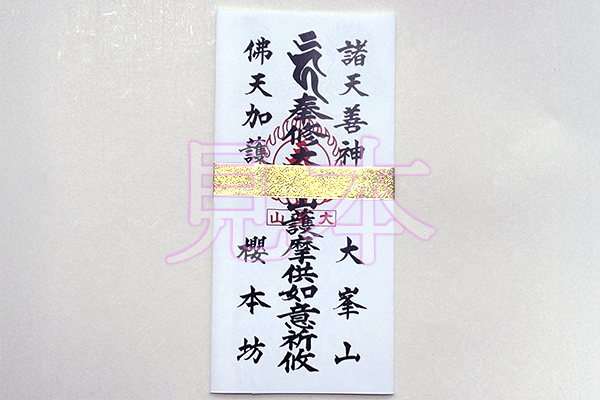 諸天善神 大峯山
奉修大山護摩供如意祈攸
佛天加護 櫻本坊
大山
見本